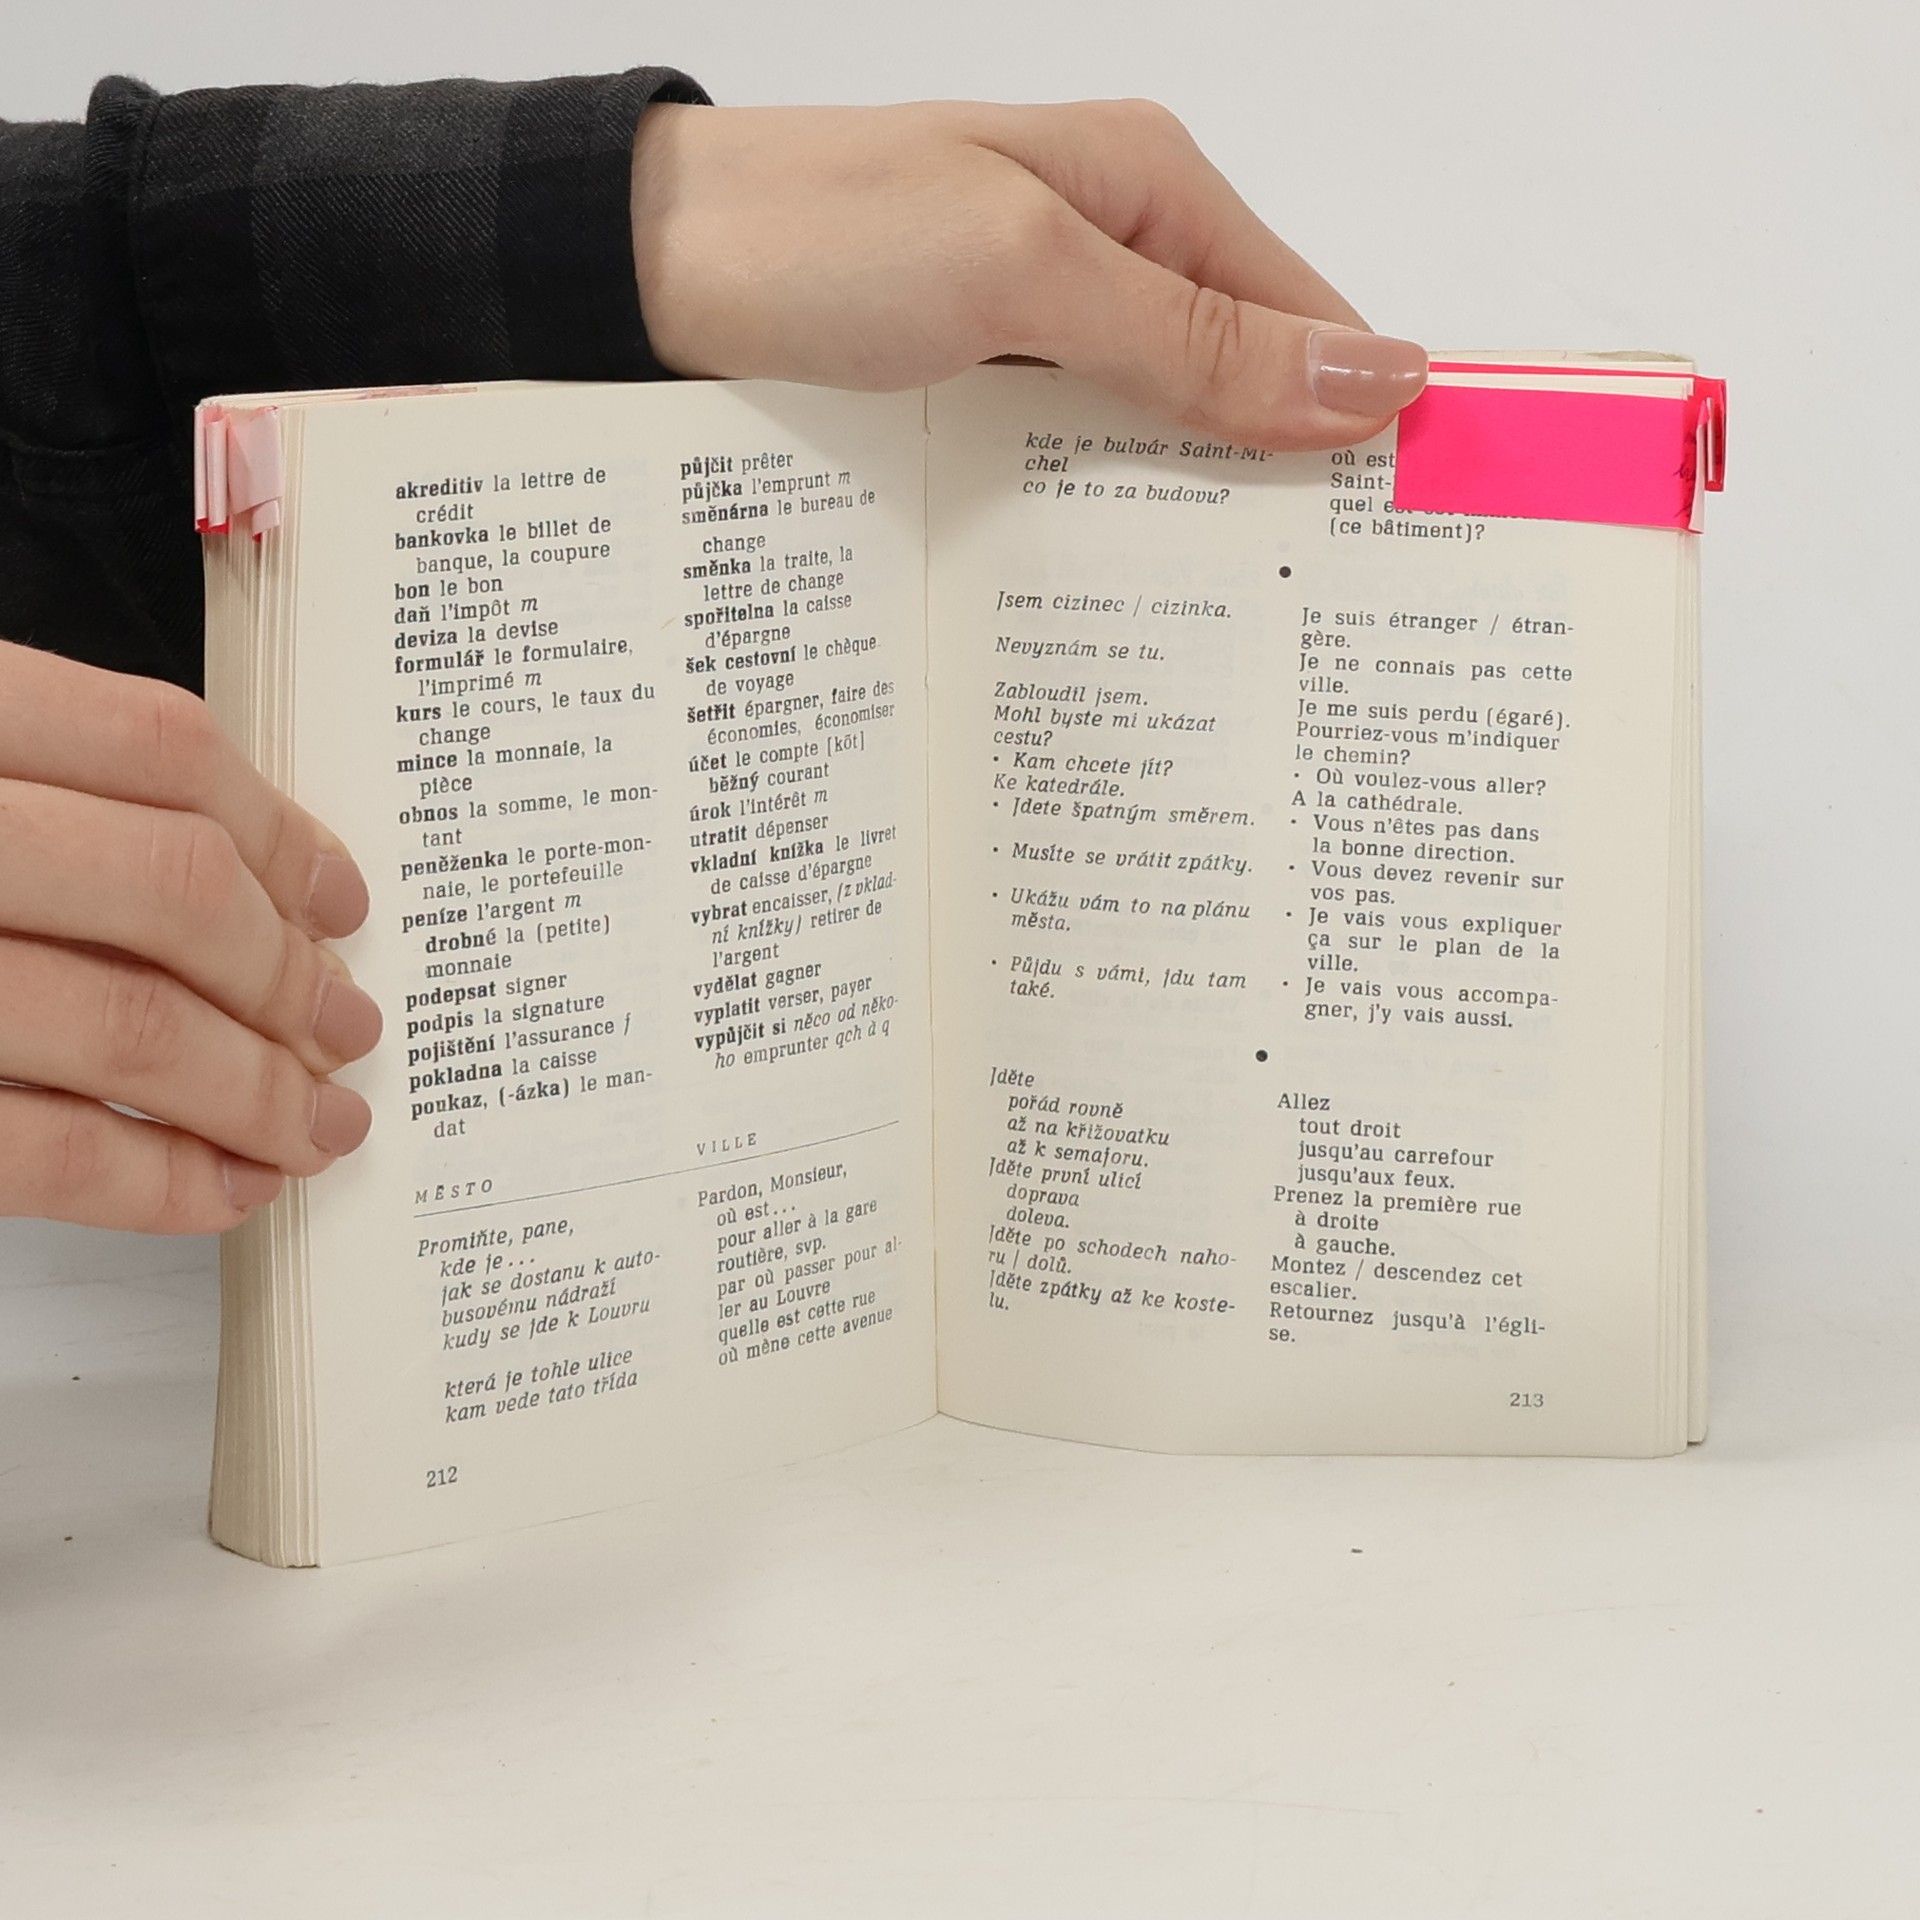 akreditiv la lettre de
crédit
bankovka le billet de
banque, la coupure
bon le bon
daň l'impôt m
deviza la devise
formulář le formulaire,
l'imprimé m
kurs le cours, le taux du
change
mince la monnaie, la
pièce
obnos la somme, le mon-
tant
peněženka le porte-mon-
naie, le portefeuille
peníze l'argent m
drobné la (petite)
monnaie
podepsat signer
podpis la signature
pojištění l'assurance f
pokladna la caisse
poukaz, (-ázka) le man-
dat
půjčit prêter
půjčka l'emprunt m
směnárna le bureau de
change
směnka la traite, la
lettre de change
spořitelna la caisse
d'épargne
šek cestovní le chèque
de voyage
šetřit épargner, faire des
économies, économiser
účet le compte [kõt]
běžný courant
úrok l'intérêt m
utratit dépenser
vkladní knížka le livret
de caisse d'épargne
vybrat encaisser, (z vklad-
ní knížky) retirer de
l'argent
vydělat gagner
vyplatit verser, payer
vypůjčit si něco od něko-
ho emprunter qch à q
MĚSTO
VILLE
Promiňte, pane,
kde je...
jak se dostanu k auto-
busovému nádraží
kudy se jde k Louvru
která je tohle ulice
kam vede tato třída
Pardon, Monsieur,
où est...
pour aller à la gare
routière, svp.
par où passer pour al-
ler au Louvre
quelle est cette rue
où mène cette avenue
212
kde je bulvár Saint-Mi-
chel
co je to za budovu?
où est
Saint-
quel
(ce bâtiment)?
•
Jsem cizinec / cizinka.
Nevyznám se tu.
Zabloudil jsem.
Mohl byste mi ukázat
cestu?
• Kam chcete jít?
Ke katedrále.
• Jdete špatným směrem.
• Musíte se vrátit zpátky.
• Ukážu vám to na plánu
města.
• Půjdu s vámi, jdu tam
také.
Je suis étranger / étran-
gère.
Je ne connais pas cette
ville.
Je me suis perdu (égaré).
Pourriez-vous m'indiquer
le chemin?
• Où voulez-vous aller?
A la cathédrale.
• Vous n'êtes pas dans
la bonne direction.
• Vous devez revenir sur
vos pas.
• Je vais vous expliquer
ça sur le plan de la
ville.
• Je vais vous accompa-
gner, j'y vais aussi.
•
Jděte
pořád rovně
až na křižovatku
až k semaforu.
Jděte první ulicí
doprava
doleva.
Jděte po schodech naho-
ru / dolů.
Jděte zpátky až ke koste-
lu.
Allez
tout droit
jusqu'au carrefour
jusqu'aux feux.
Prenez la première rue
à droite
à gauche.
Montez / descendez cet
escalier.
Retournez jusqu'à l'égli-
se.
213